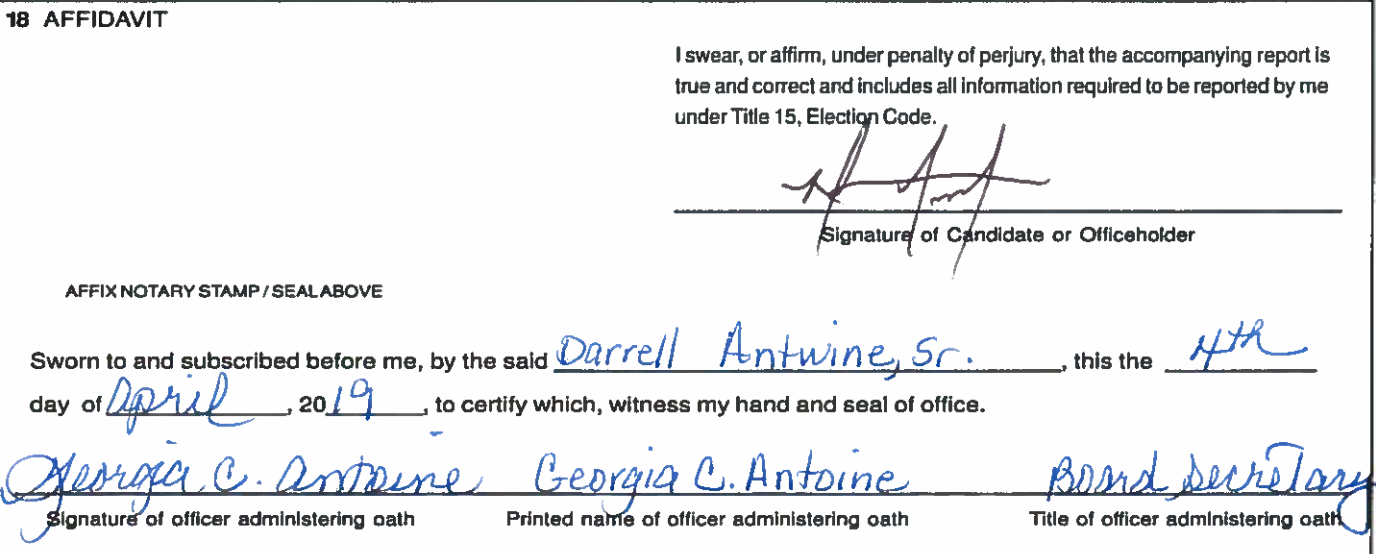 18 AFFIDAVIT
I swear, or affirm, under penalty of perjury, that the accompanying report is
true and correct and includes all information required to be reported by me
under Title 15, Election Code.
Signature of Candidate or Officeholder
AFFIX NOTARY STAMP / SEAL ABOVE
Sworn to and subscribed before me, by the said Darrell Antwine, Sr. , this the 4th
day of April , 20 19 , to certify which, witness my hand and seal of office.
Georgia C. Antoine Georgia C. Antoine Board Secretary
Signature of officer administering oath Printed name of officer administering oath Title of officer administering oath